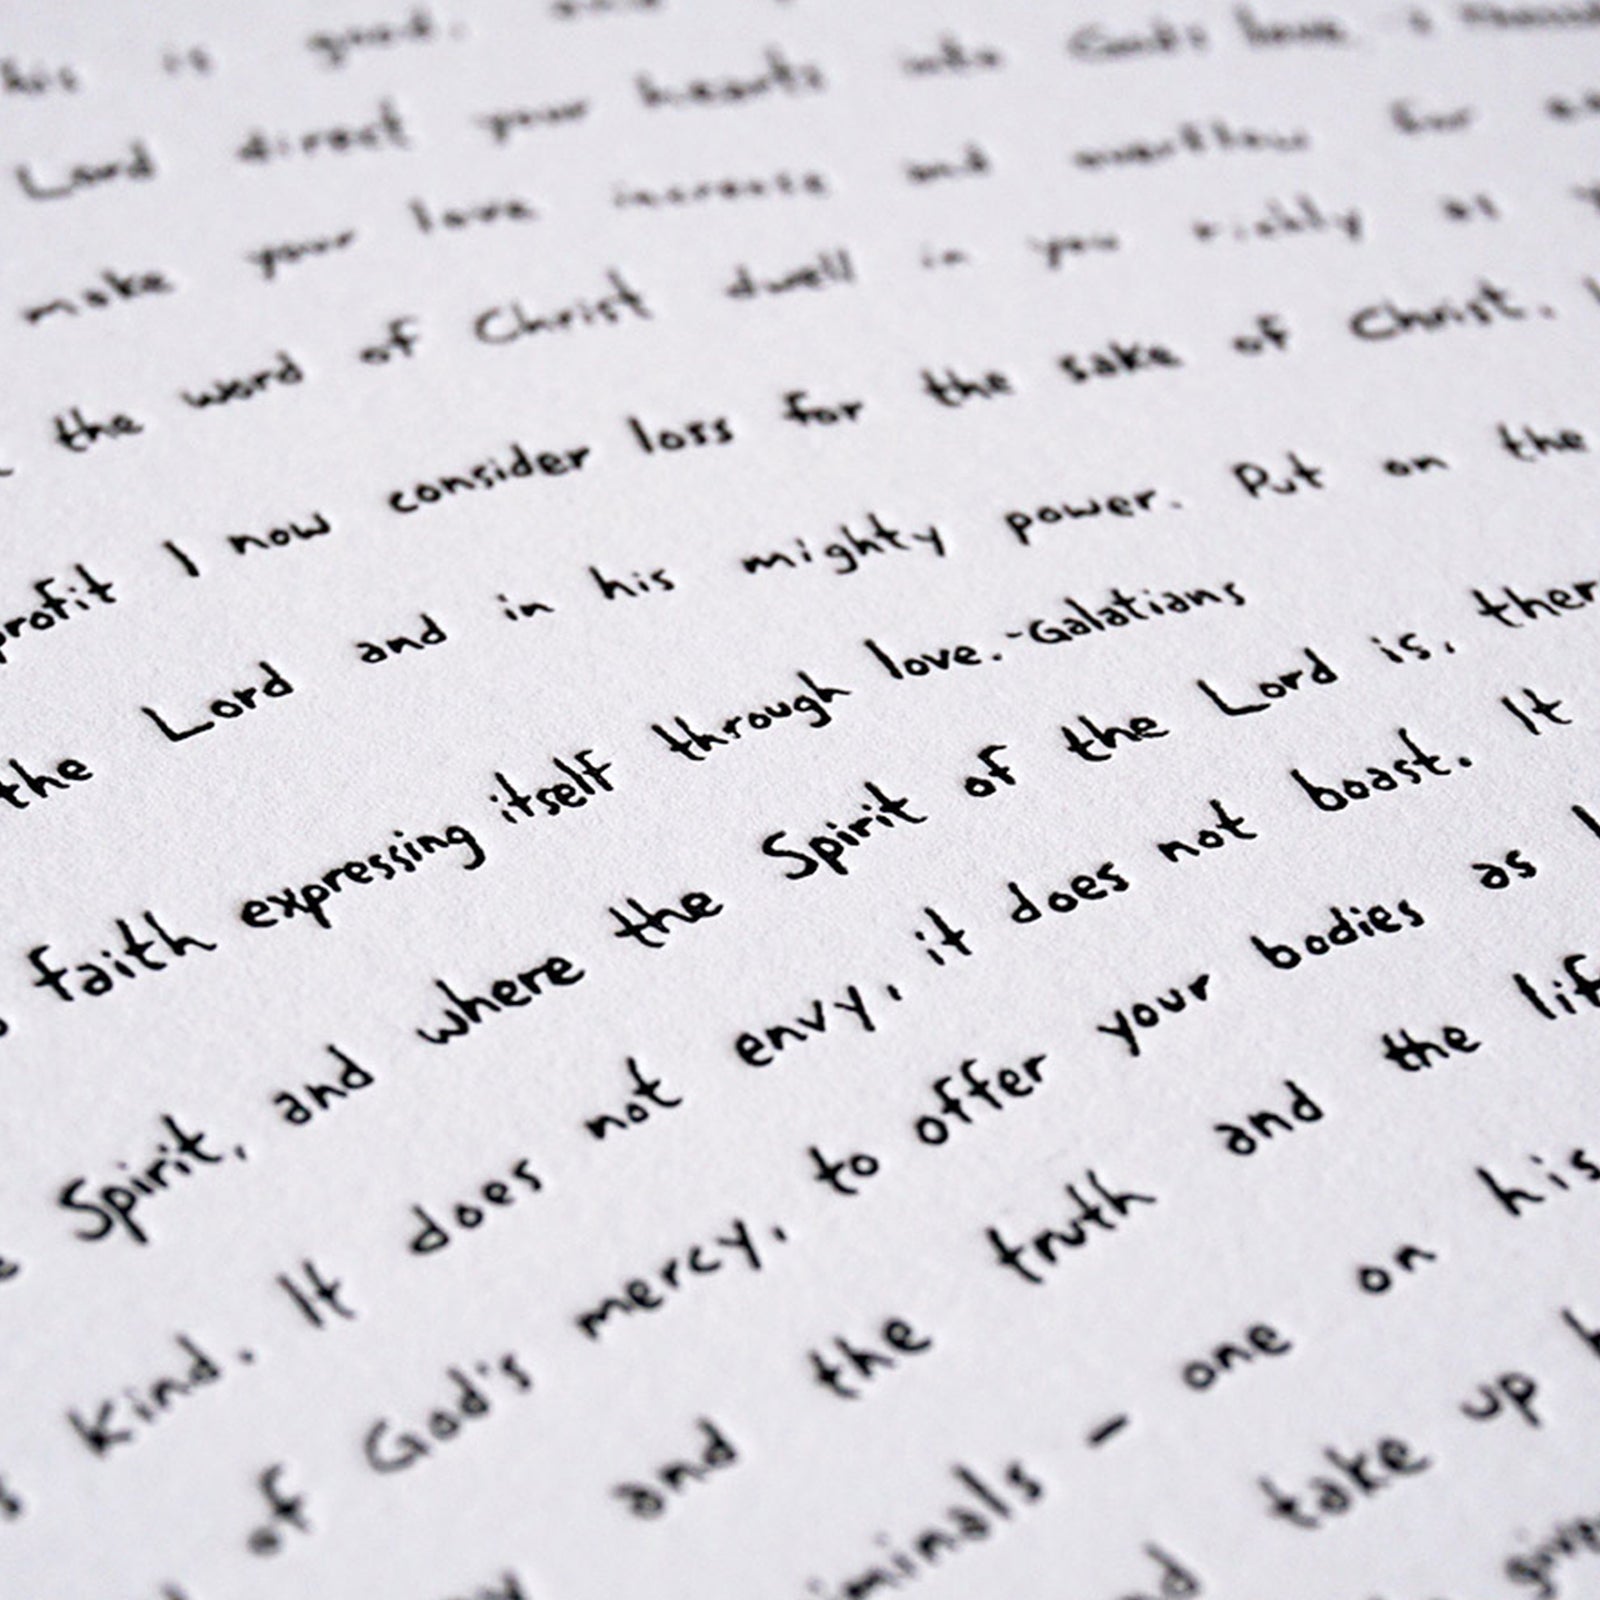 his is good. and
Lord direct your hearts into God's love &
make your love increase and overflow for
the word of Christ dwell in you richly as
profit I now consider loss for the sake of Christ.
the Lord and in his mighty power. Put on the
faith expressing itself through love.-Galatians
Spirit, and where the Spirit of the Lord is, ther
kind. It does not envy, it does not boast. It
of God's mercy, to offer your bodies as
and the truth and the lif
iminals - one on his
nd take up
give